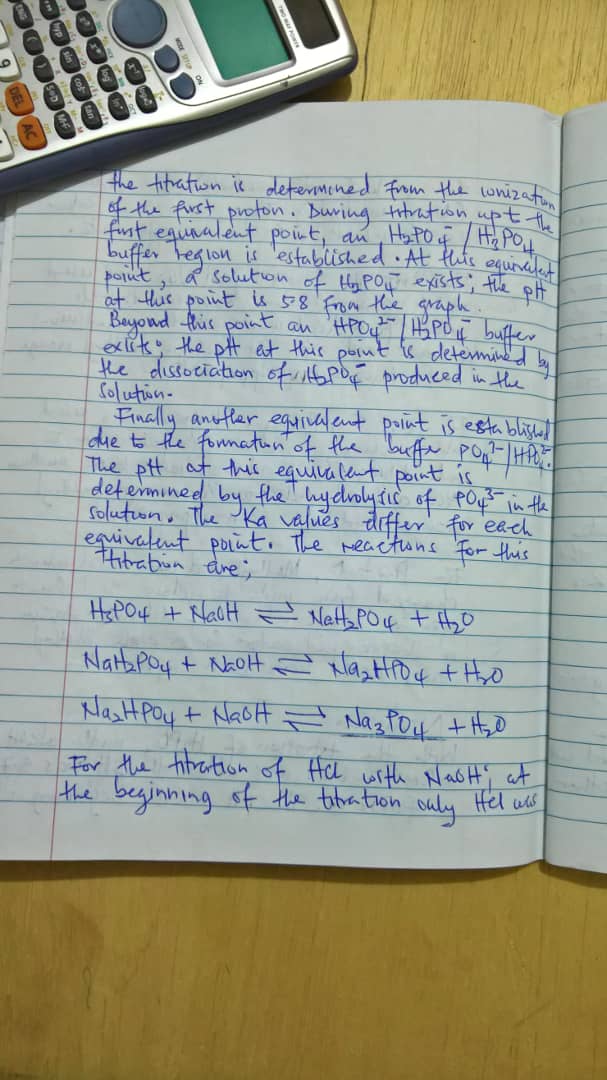 TWO WAY POWER
MODE SETUP
ON
DEL
AC
9
the titration is determined from the ionization
of the first proton. During titration upt the
first equivalent point, an H₂PO₄⁻ / H₃PO₄
buffer region is established. At this equivalent
point, a solution of H₂PO₄⁻ exists; the pH
at this point is 5.8 from the graph.
Beyond this point an HPO₄²⁻ / H₂PO₄⁻ buffer
exists; the pH at this point is determined by
the dissociation of H₂PO₄⁻ produced in the
solution.
Finally another equivalent point is established
due to the formation of the buffer PO₄³⁻/HPO₄²⁻.
The pH at this equivalent point is
determined by the hydrolysis of PO₄³⁻ in the
solution. The Ka values differ for each
equivalent point. The reactions for this
titration are;
H₃PO₄ + NaOH ⇌ NaH₂PO₄ + H₂O
NaH₂PO₄ + NaOH ⇌ Na₂HPO₄ + H₂O
Na₂HPO₄ + NaOH ⇌ Na₃PO₄ + H₂O
For the titration of HCl with NaOH; at
the beginning of the titration only HCl was